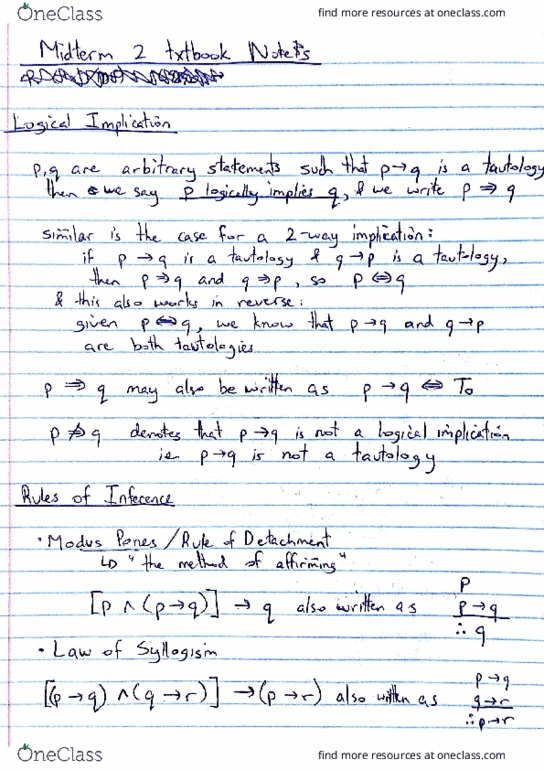 OneClass
find more resources at oneclass.com
Midterm 2 txtbook Notes
Logical Implication
p,q are arbitrary statements such that p→q is a tautology
then we say p logically implies q, & we write p ⇒ q
similar is the case for a 2-way implication:
if p→q is a tautology & q→p is a tautology,
then p⇒q and q⇒p, so p⇔q
& this also works in reverse:
given p⇔q, we know that p→q and q→p
are both tautologies
p ⇒ q may also be written as p→q ⇔ T₀
p ⇏ q denotes that p→q is not a logical implication
ie p→q is not a tautology
Rules of Inference
• Modus Pones / Rule of Detachment
↳ "the method of affirming"
p
[p ∧ (p→q)] → q also written as p→q
∴ q
• Law of Syllogism
p→q
[(p→q) ∧ (q→r)] → (p→r) also written as q→r
∴ p→r
OneClass
find more resources at oneclass.com